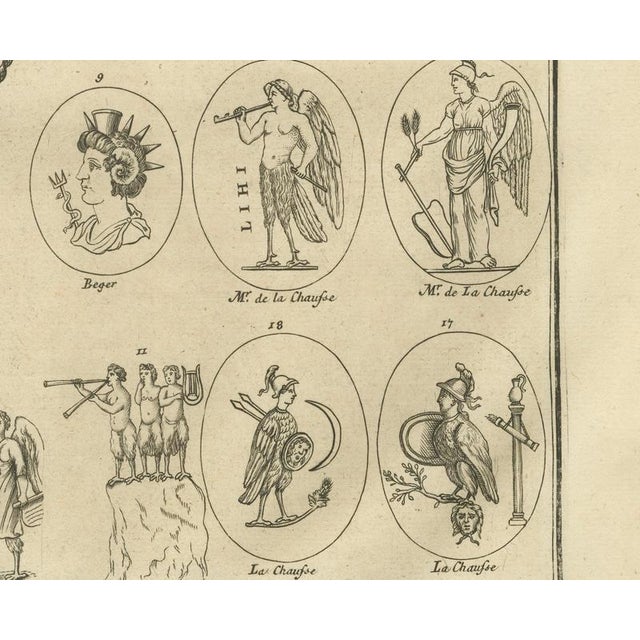 9
LIHI
Beger
Mr. de la Chauſse
Mr. de La Chauſse
11
18
17
La Chauſse
La Chauſse